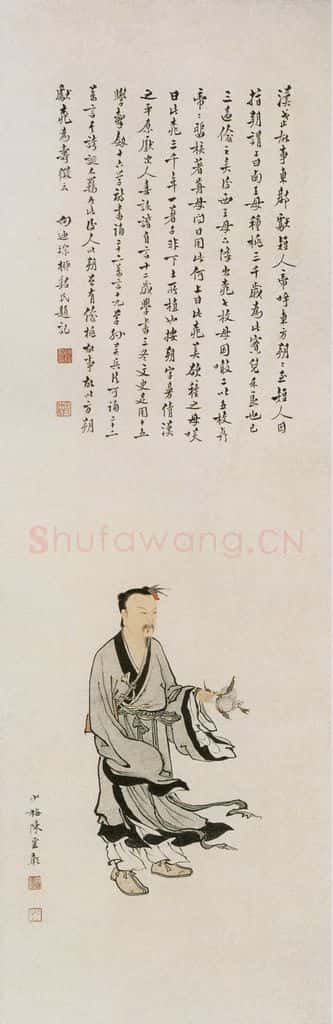 漢武故事東郡獻短人帝呼東方朔朔至短人因
指朔謂上曰西王母種桃三千歲為此兒不良也已
三過偷之矣後西王母下降出桃七枚母因噉二以五枚與
帝帝留核著前母問曰用此何上曰此桃美欲種之母笑
曰此桃三千年一著子非下土所植也按朔字曼倩漢
之平原厭次人喜詼諧自言十二歲學書三冬文史足用十五
學擊劍十六學詩書誦二十二萬言十九學孫吳兵法亦誦二十二
萬言其誇誕不羈如此後人以朔有偷桃故事故以方朔
獻桃為壽徵云 迪琛題記
Shufawang.CN
少梅陳雲彰